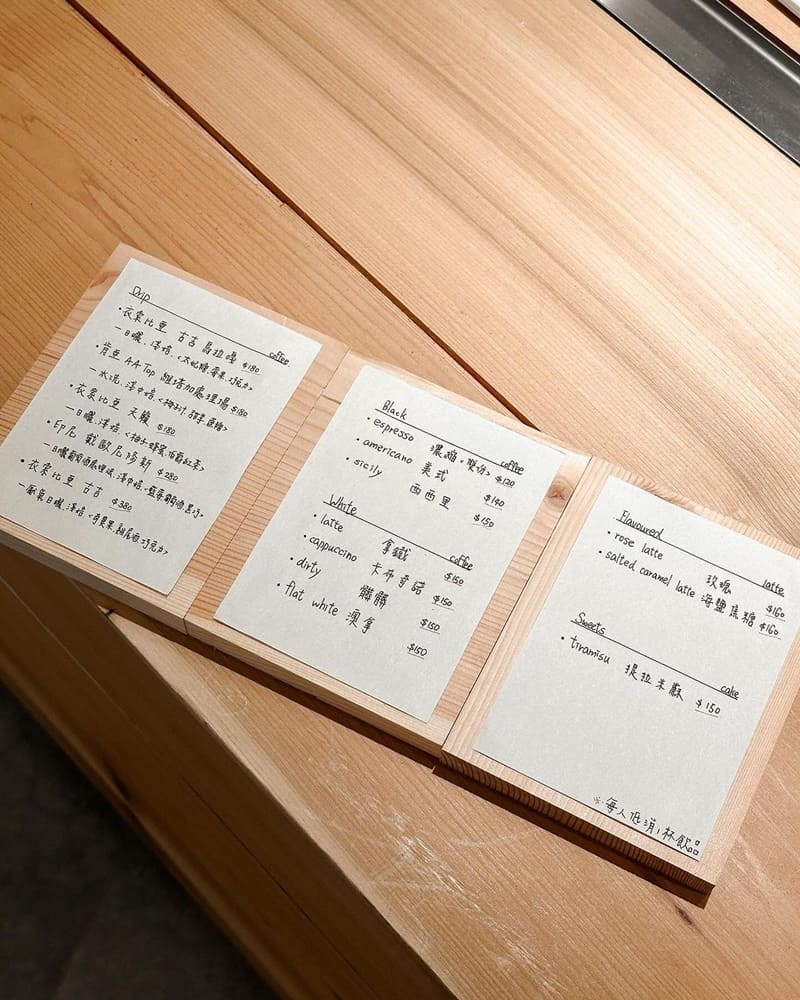 Drip coffee
•衣索比亞 古吉 烏拉嘎 $180
－日曬．淺焙．<太妃糖．莓果．巧克力>
•肯亞 AA Top 處理場 $180
－水洗．淺中焙．<梅汁．
•衣索比亞 天籟 $180
－日曬．淺焙．<柚子．蜂蜜．伯爵紅茶>
•印尼 歐尼塔斯 $280
－日曬葡萄酒處理法．淺中焙．<藍莓．葡萄酒．
•衣索比亞 古吉 $380
－厭氧日曬．淺焙．<巧克力>
Black coffee
•espresso 濃縮<雙份> $120
•americano 美式 $140
•sicily 西西里 $150
White coffee
•latte 拿鐵 $150
•cappuccino 卡布奇諾 $150
•dirty 髒髒 $150
•flat white 澳拿 $150
Flavoured latte
•rose latte 玫瑰 $160
•salted caramel latte 海鹽焦糖 $160
Sweets cake
•tiramisu 提拉米蘇 $150
※每人低消1杯飲品